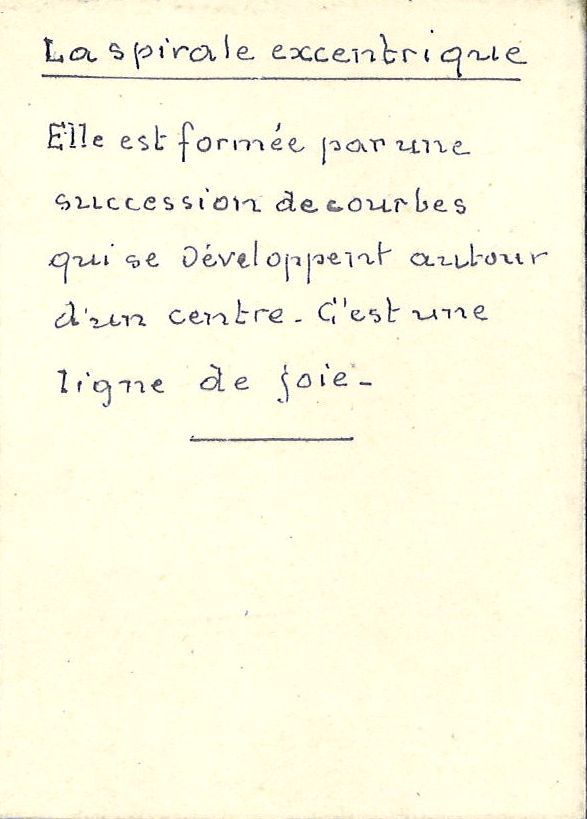 La spirale excentrique
Elle est formée par une
succession de courbes
qui se développent autour
d'un centre. C'est une
ligne de joie -